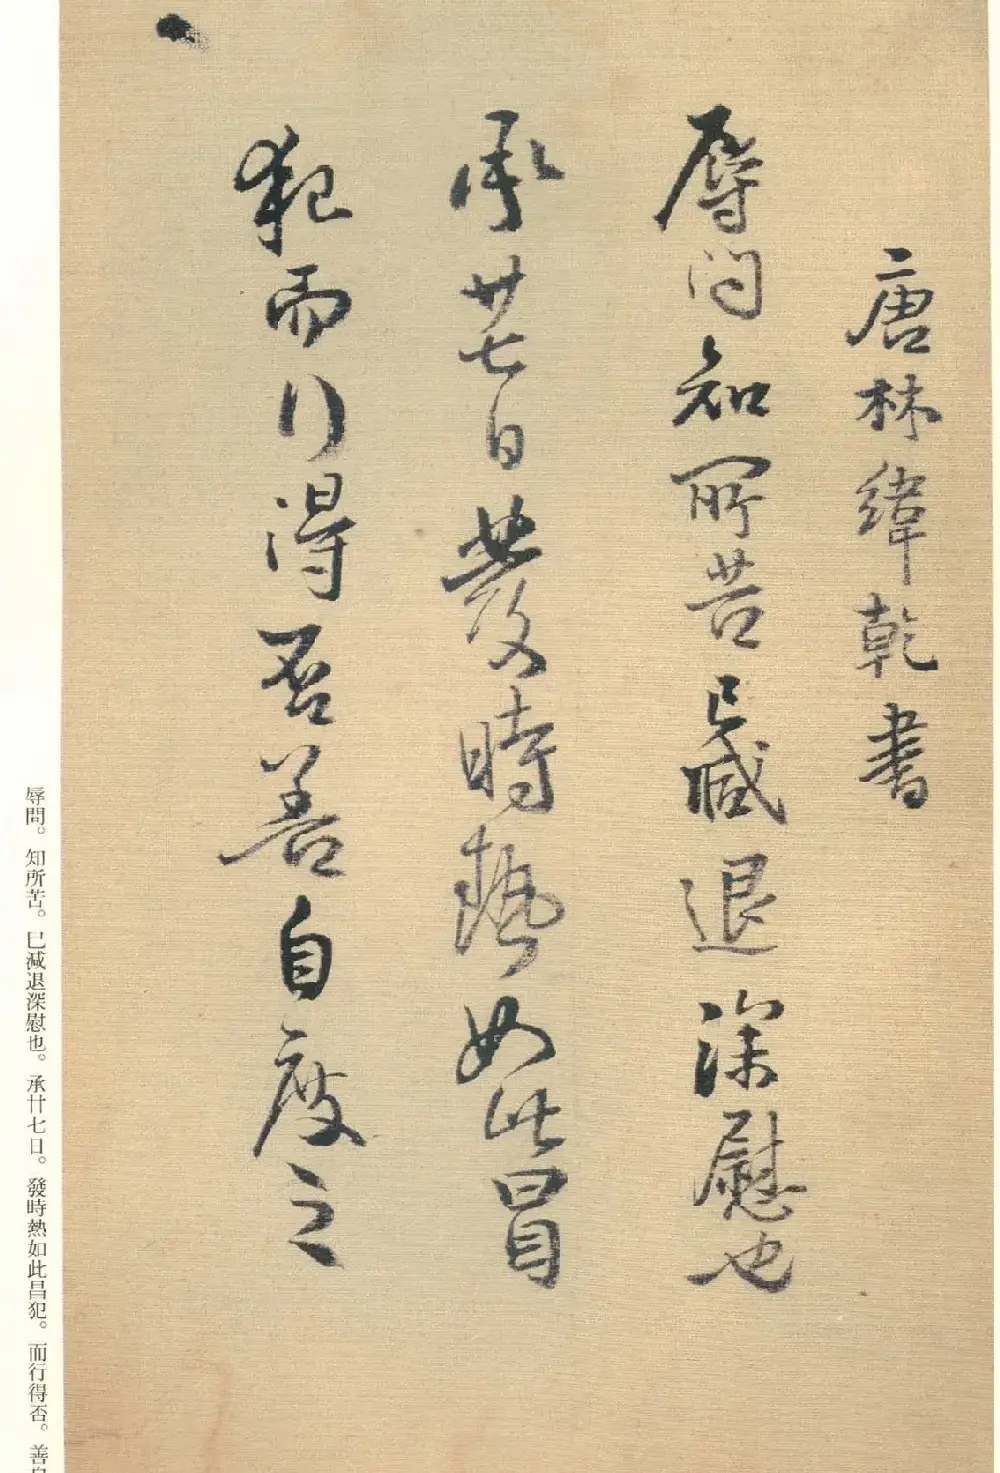 唐林緯乾書
辱問知所苦已減退深慰也
承廿七日發時熱如此冒
犯而行得否善自度之
辱問。知所苦。已減退深慰也。承廿七日。發時熱如此昌犯。而行得否。善自